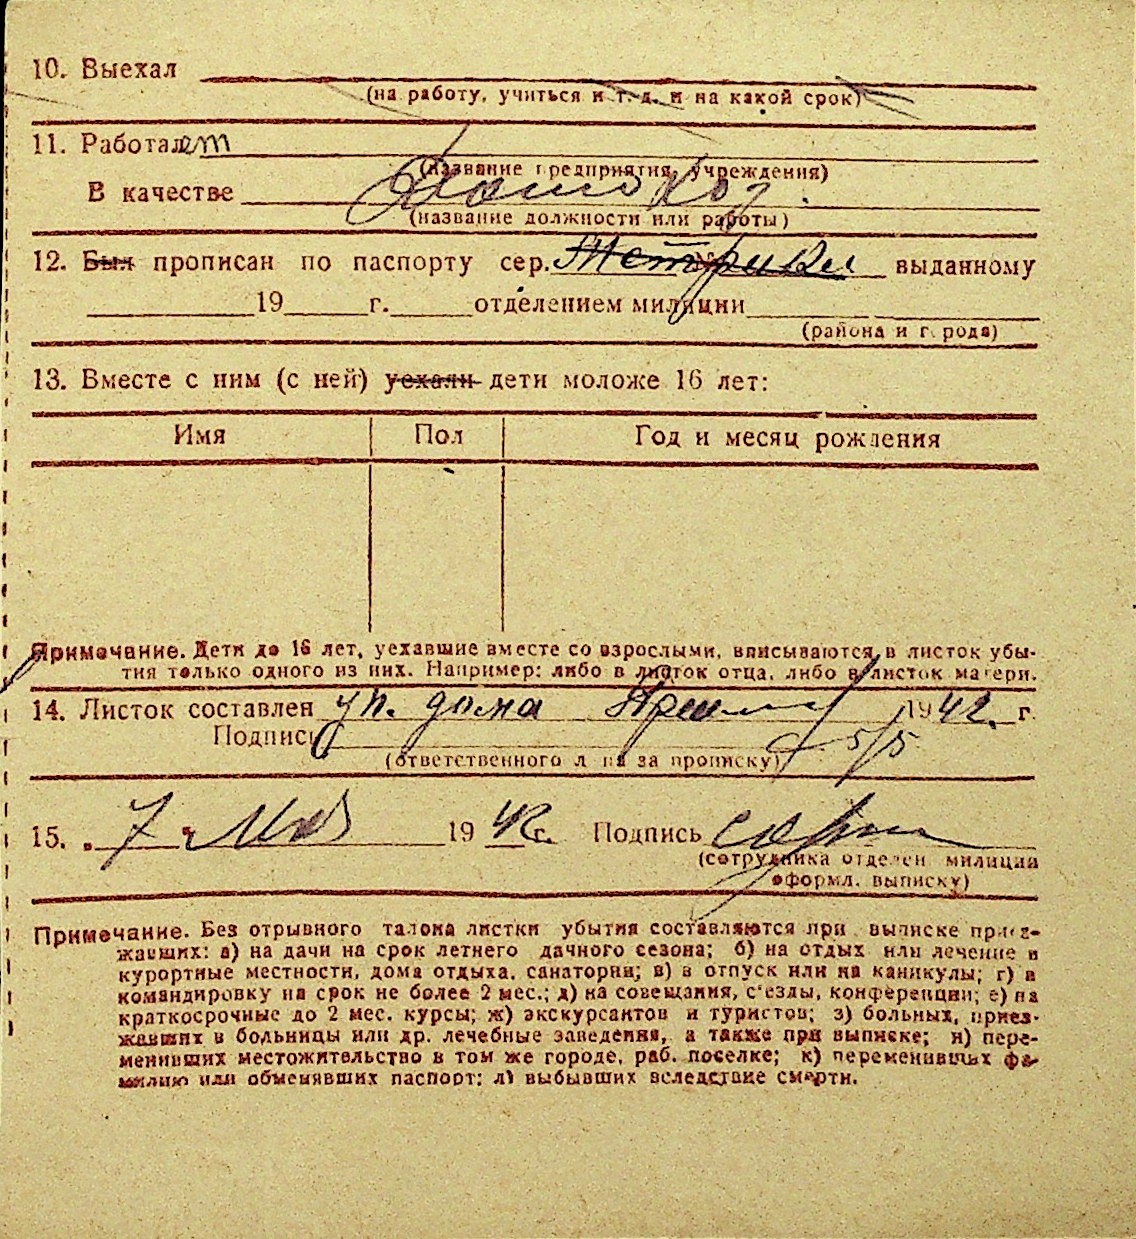 10. Выехал
(на работу, учиться и т. д. и на какой срок)
11. Работает
(название предприятия, учреждения)
В качестве
(название должности или работы)
12. Был прописан по паспорту сер. Метрики выданному
19 г. отделением милиции
(района и города)
13. Вместе с ним (с ней) уехали дети моложе 16 лет:
Имя Пол Год и месяц рождения
Примечание. Дети до 16 лет, уехавшие вместе со взрослыми, вписываются в листок убы-
тия только одного из них. Например: либо в листок отца, либо в листок матери.
14. Листок составлен уп. дома 1942 г.
Подпись 5/5
(ответственного лица за прописку)
15. 7 Мая 1942 г. Подпись
(сотрудника отделен. милиции
оформл. выписку)
Примечание. Без отрывного талона листки убытия составляются при выписке приез-
жавших: а) на дачи на срок летнего дачного сезона; б) на отдых или лечение в
курортные местности, дома отдыха, санатории; в) в отпуск или на каникулы; г) в
командировку на срок не более 2 мес.; д) на совещания, с'езды, конференции; е) на
краткосрочные до 2 мес. курсы; ж) экскурсантов и туристов; з) больных, приез-
жавших в больницы или др. лечебные заведения, а также при выписке; и) пере-
менивших местожительство в том же городе, раб. поселке; к) переменивших фа-
милию или обменявших паспорт; л) выбывших вследствие смерти.